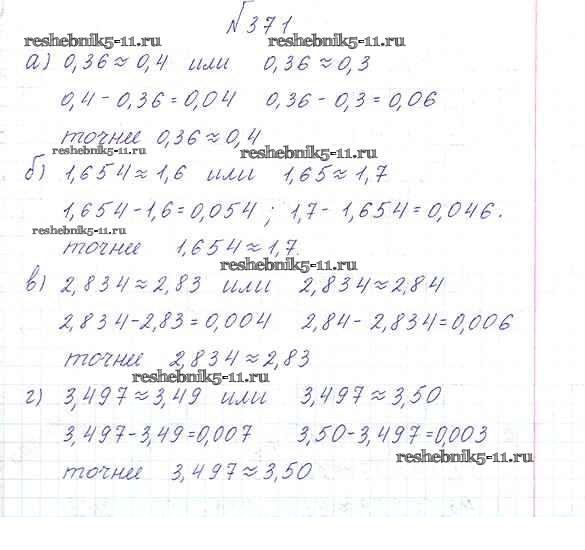 №371
reshebnik5-11.ru reshebnik5-11.ru
а) 0,36≈0,4 или 0,36≈0,3
0,4-0,36=0,04 0,36-0,3=0,06
точнее 0,36≈0,4
reshebnik5-11.ru reshebnik5-11.ru
б) 1,654≈1,6 или 1,65≈1,7
1,654-1,6=0,054; 1,7-1,654=0,046.
reshebnik5-11.ru
точнее 1,654≈1,7.
reshebnik5-11.ru
в) 2,834≈2,83 или 2,834≈2,84
2,834-2,83=0,004 2,84-2,834=0,006
точнее 2,834≈2,83
reshebnik5-11.ru
г) 3,497≈3,49 или 3,497≈3,50
3,497-3,49=0,007 3,50-3,497=0,003
reshebnik5-11.ru
точнее 3,497≈3,50